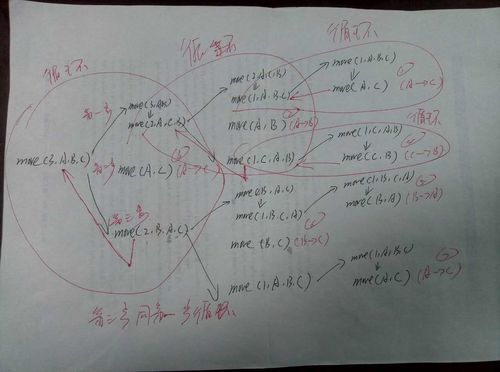 循环
循一步
循环
move(3,A,B,C)
第一步
move(3,A,B,C)
move(2,A,C,B)
第二步
move(A,C) (A→C)
第三步
move(2,B,A,C)
move(2,A,C,B)
move(1,A,B,C)
move(A,B) (A→B)
move(1,C,A,B)
move(2,B,A,C)
move(1,B,C,A)
move(B,C) (B→C)
move(1,A,B,C)
move(1,A,B,C)
move(A,C) (A→C)
循环
move(1,C,A,B)
move(C,B) (C→B)
move(1,B,C,A)
move(B,A) (B→A)
move(1,A,B,C)
move(A,C) (A→C)
第三步同第一步循环